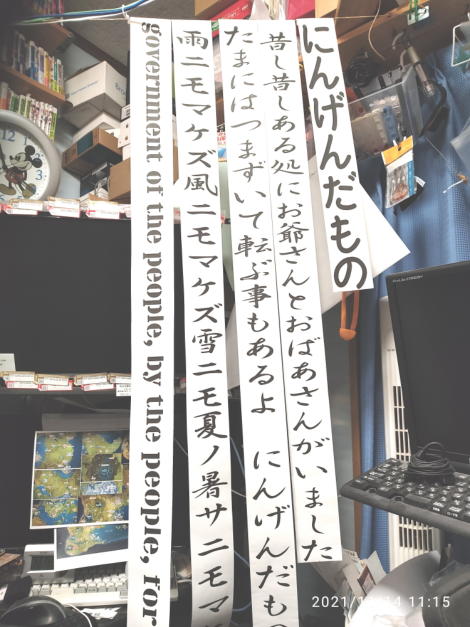 にんげんだもの
昔し昔しある処にお爺さんとおばあさんがいました
たまにはつまずいて転ぶ事もあるよ　にんげんだもの
雨ニモマケズ風ニモマケズ雪ニモ夏ノ暑サニモマ
government of the people, by the people, for
2021/11/14 11:15